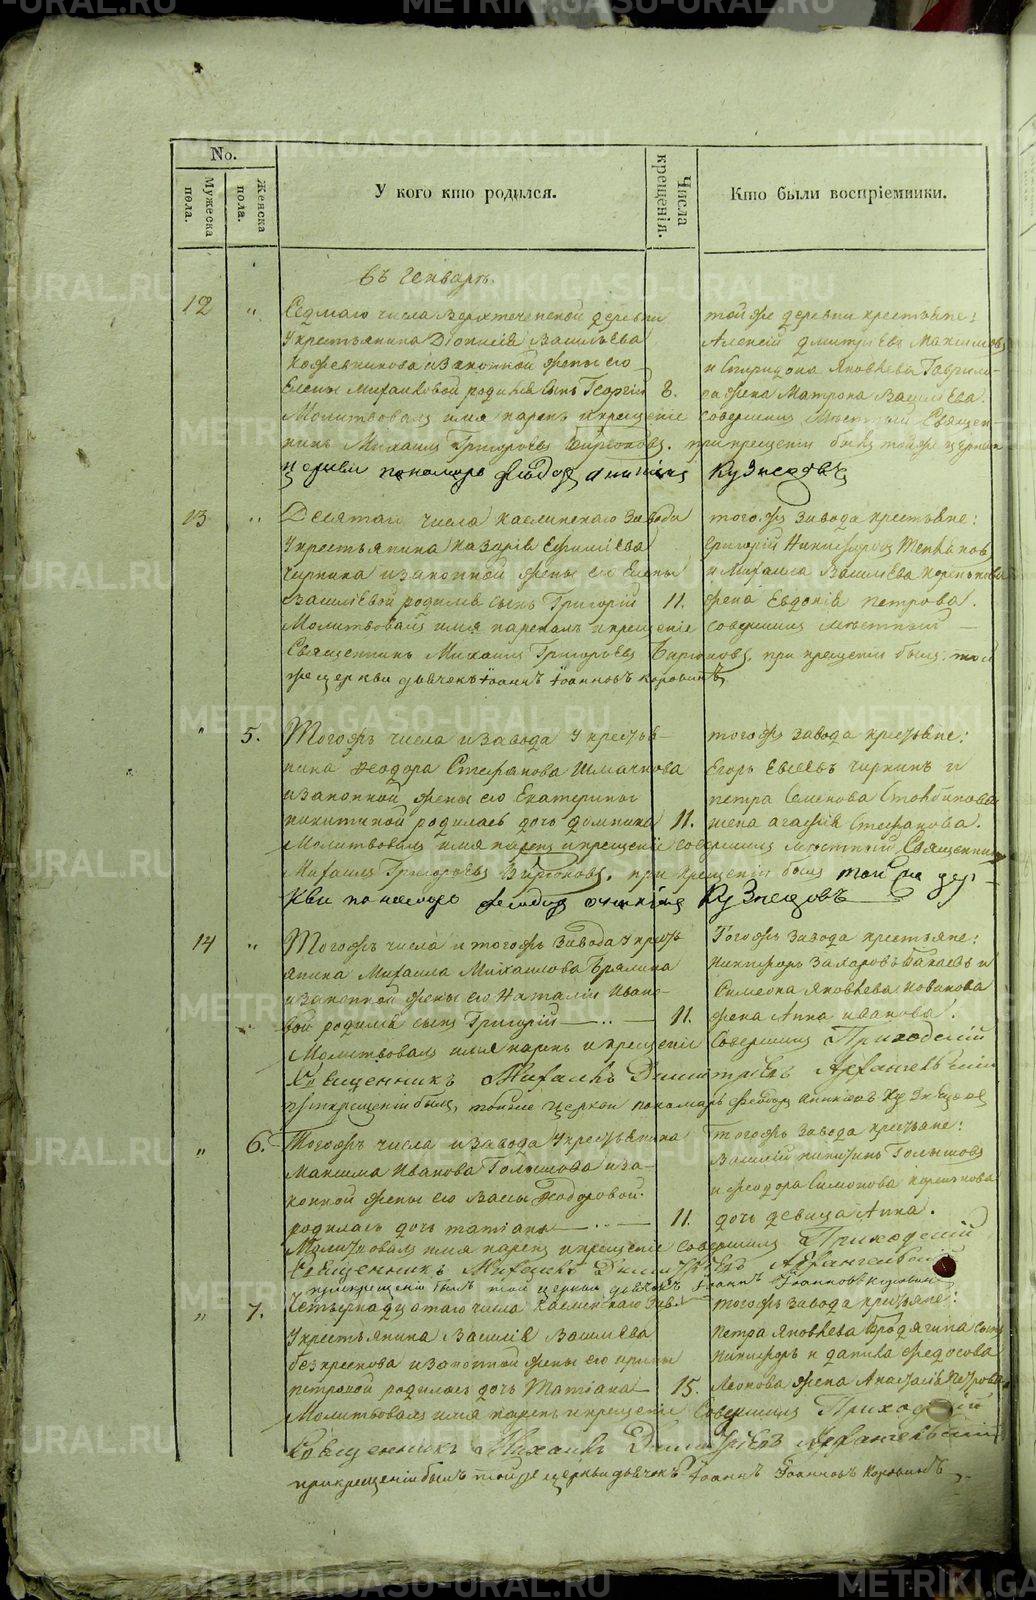 No.
Мужеска пола.
Женска пола.
У кого кто родился.
Числа крещенія.
Кто были воспріемники.
въ генварѣ.
12 " Седмаго числа Верхтеченской деревни
у крестьянина Діонисія Васильева
Кожевникова и законной жены его
Елены Михайловой родился сынъ Георгій 8.
той же деревни крестьяне:
Алексѣй Дмитріевъ
и Спиридона Яковлева
жена Матрона Васильева.
Молитвовалъ имя нарекъ и крещеніе совершилъ мѣстный Священ-
никъ Михаилъ Григорьевъ Бирюковъ. при крещеніи былъ той же церкви
пономарь Кузнецовъ
13 " Десятаго числа Каслинскаго завода
у крестьянина Назарія
Чиркина и законной жены его Елены
Васильевой родился сынъ Григорій 11.
того же завода крестьяне:
Григорій Никифоровъ
и Михаила Васильева
жена Евдокія Петрова.
Молитвовалъ имя нарекалъ и крещеніе совершилъ мѣстный
Священникъ Михаилъ Григорьевъ Бирюковъ, при крещеніи былъ той
же церкви дьячекъ Іоаннъ Іоанновъ Коровинъ
" 5. Тогожъ числа и завода у крестья-
нина Ѳеодора Стефанова
и законной жены его Екатерины
Никитиной родилась дочь Домника 11.
того жъ завода крестьяне:
Егоръ Евсѣевъ Чиркинъ и
Петра Семенова
жена Агафія Стефанова.
Молитвовалъ имя нарекъ и крещеніе совершилъ мѣстный Священникъ
Михаилъ Григорьевъ Бирюковъ, при крещеніи былъ той же цер-
кви пономарь Кузнецовъ
14 " Тогожъ числа и тогожъ завода у кресть
янина Михаила Михайлова
и законной жены его Наталіи Ивано-
вой родился сынъ Григорій 11.
Тогожъ завода крестьяне:
Никифоръ Захаровъ и
Симеона Яковлева Новикова
жена Анна Иванова.
Молитвовалъ имя нарекъ и крещеніе совершилъ Приходскій
Священникъ Михаилъ Димитріевъ Архангельскій
при крещеніи былъ, тойже церкви пономарь Феодоръ
" 6. Тогожъ числа и завода у крестьянина
Максима Иванова Голышова и за-
конной жены его Вассы Ѳодоровой
родилась дочь Татіана 11.
тогожъ завода крестьяне:
Василій Никитинъ Голышовъ
и Феодора Симонова
дочь девица Анна.
Молитвовалъ имя нарекъ и крещеніе совершилъ Приходскій
Священникъ Михаилъ Димитріевъ Архангельскій
при крещеніи былъ той же церкви дьячекъ Іоаннъ Іоанновъ Коровинъ
" 7. Четырнадцатаго числа Каслинскаго зав.
у крестьянина Василія Васильева
и законной жены его Ирины
Петровой родилась дочь Татіана 15.
тогожъ завода крестьяне:
Петра Яковлева Бродягина сынъ
Никифоръ и Данила Федосова
Леонова жена Анастасія Петрова.
Молитвовалъ имя нарекъ и крещеніе совершилъ Приходскій
Священникъ Михаилъ Димитріевъ Архангельскій
при крещеніи былъ той же церкви дьячекъ Іоаннъ Іоанновъ Коровинъ
METRIKI.GASO-URAL.RU